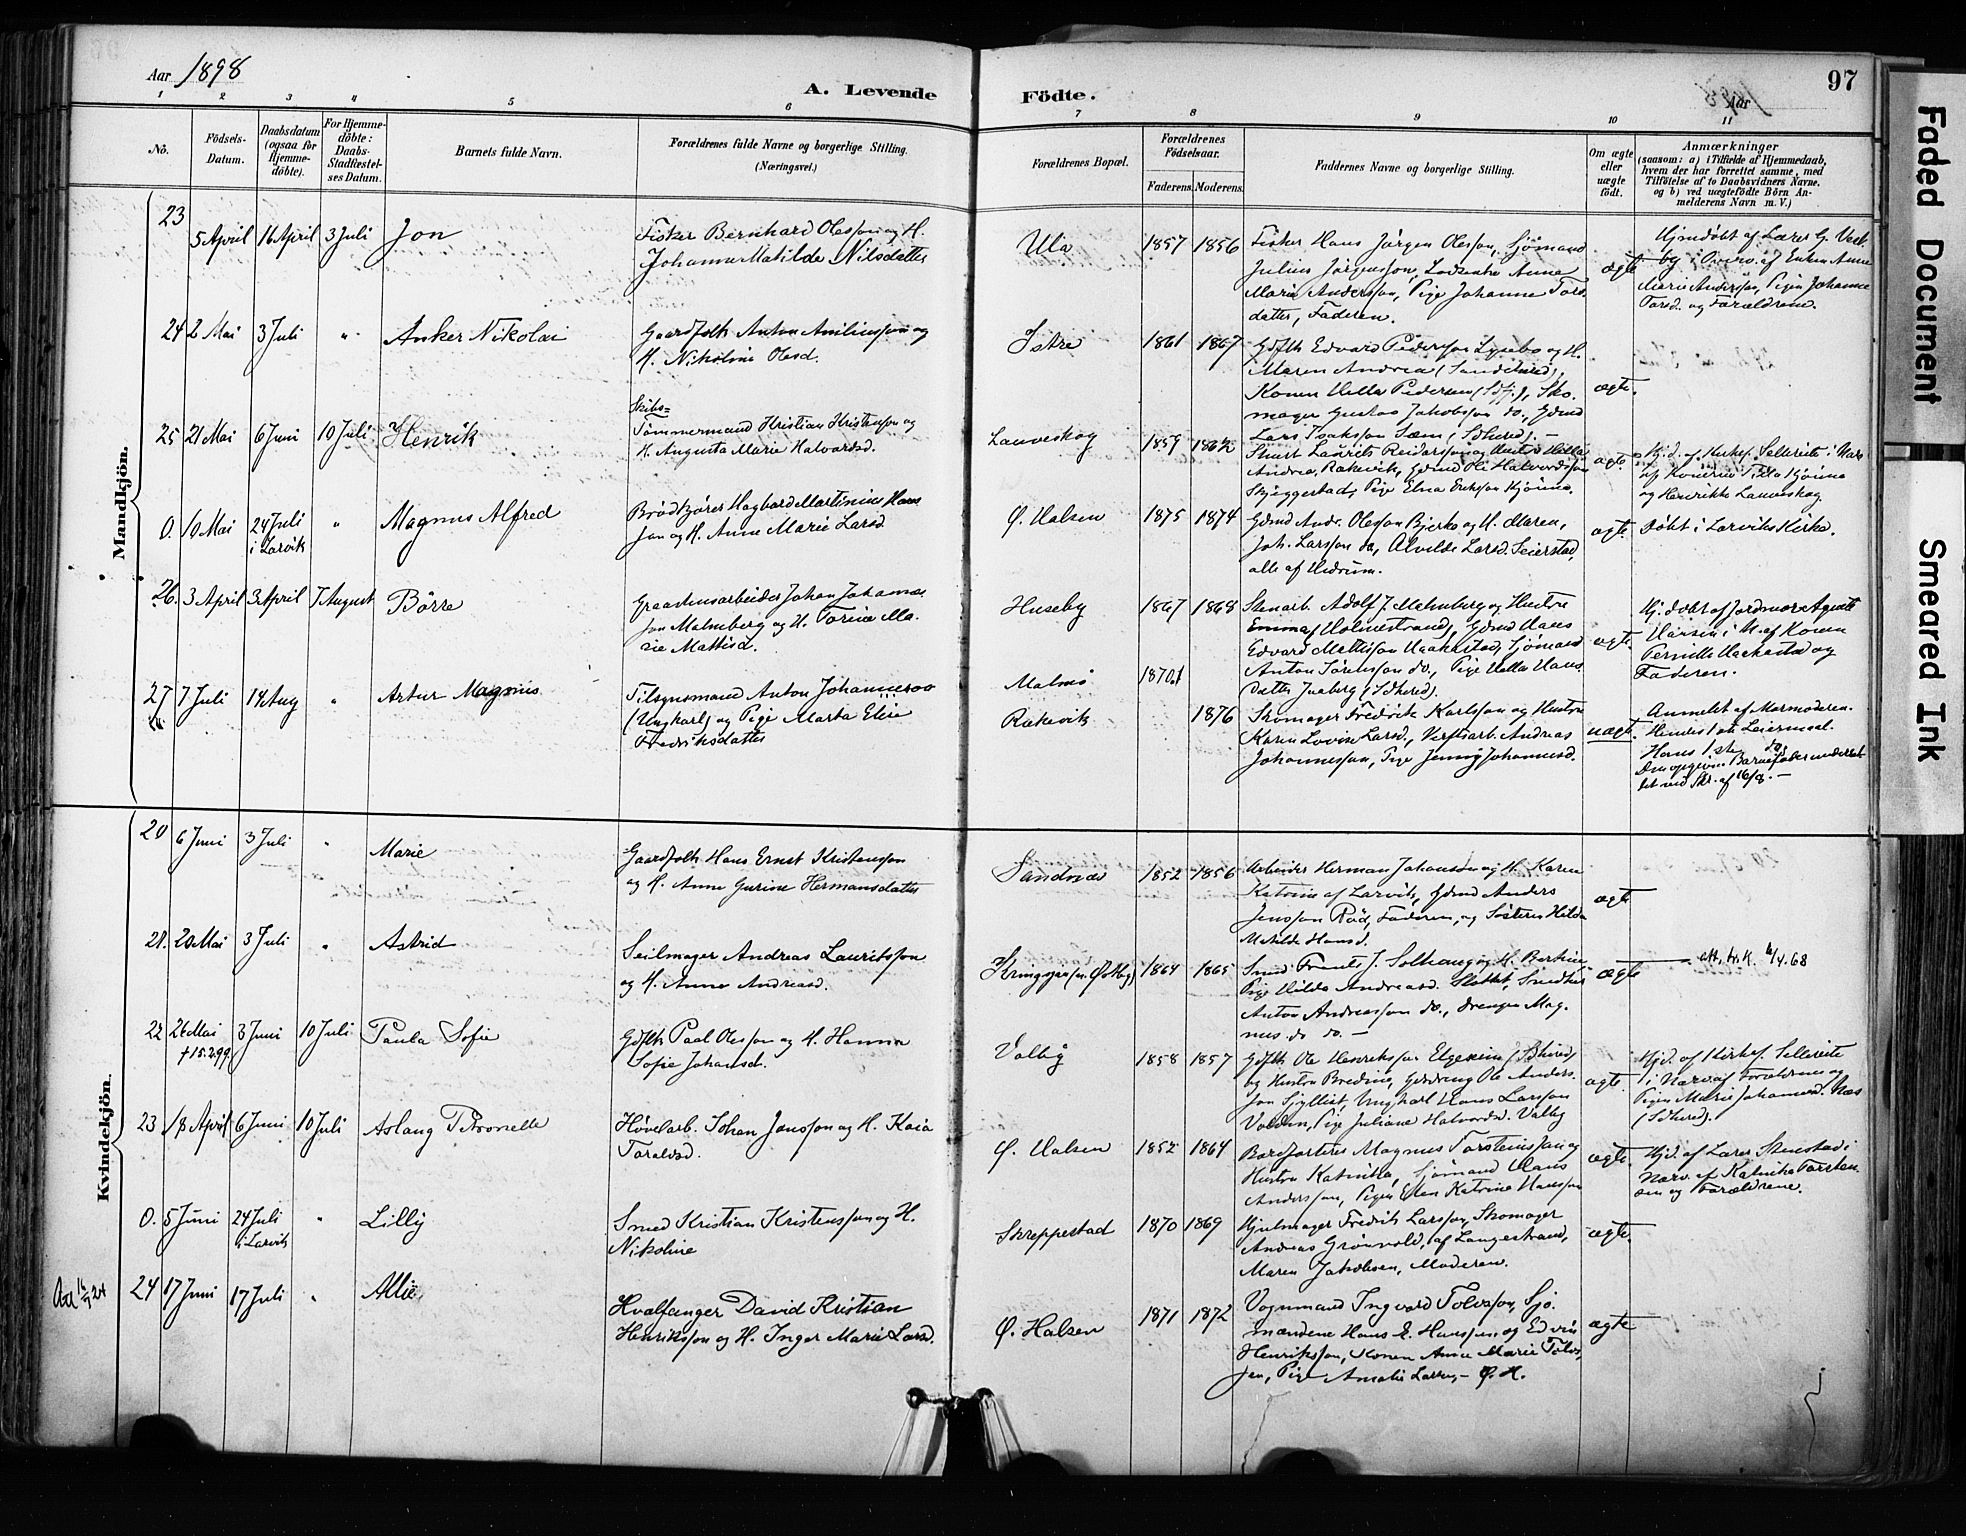 Aar 1898
A. Levende
Födte.
Aar
97
1 2 3 4 5 6 7 8 9 10 11
No.
Födsels-Datum.
Daabsdatum (ogsaa for Hjemme-döbte).
For Hjemme-döbte: Daabs-Stadfæstel-ses Datum.
Barnets fulde Navn.
Forældrenes fulde Navne og borgerlige Stilling.
(Næringsvei.)
Forældrenes Bopæl.
Forældrenes Födselsaar.
Faderens. Moderens.
Faddernes Navne og borgerlige Stilling.
Om ægte eller uægte födt.
Anmærkninger
(saasom: a) i Tilfælde af Hjemmedaab,
hvem der har forrettet samme, med
Tilföielse af to Daabsvidners Navne,
og b) ved uægtefödte Börn An-
melderens Navn m. V.)
Mandkjön.
23
5 April 16 April 3 Juli Jon
Fisker Bernhard Olesson og H.
Johanne Matilde Nilsdatter
Ula 1857 1856
Fisker Hans Jørgen Olesson, Sjömand
Julius Jørgensson, Anne
Marie Andersson, Pige Johanne Tors
datter, Faderen.
ægte
Hjmdöbt af Lærer G. Ved-
by i Overv. af Enken Anne
Marie Andersson, Pigen Johanne
Torsd. og Forældrene.
24 2 Mai 3 Juli " Anker Nikolai
Gaardfolk Anton og
H. Nikoline Olesd.
Istre 1861 1867
Gdflk Edvard Pedersson og H.
Maren Andrea (Sandehered),
Konen Helle Pedersen, Sko-
mager Gustav Jakobsson do., Gdmd
Lars Isaksson Sæm (Sdhered). -
ægte.
25 21 Mai 6 Juni 10 Juli Henrik
Skibs=
Tömmermand Kristian Kristensson og
H. Augusta Marie Halvordsd.
Lauveskog 1859 1862
Laurits Reidarsson og Hustru Helle
Andrea, Rakevik, Gdmd Ole Halvordsson
Skjeggestad, Pige Elna Eriksson Kjönnø.
ægte
Hj. d. af Kirkes. Sellereite i Nærv.
af Konerne Kjönnø
og Henrikke Lauveskog
0. 10 Mai 24 Juli i Larvik " Magnus Alfred
Brödkjörer Hagbard Martinius Hans
son og H. Anne Marie Larsd
Ø. Halsen 1875 1874
Gdmd Andr. Olesson Bjerke og H. Maren,
Joh. Larsson do, Alvilde Larsd. Seierstad,
alle af Hedrum.
ægte.
Döbt i Larviks Kirke.
26. 3 April 3 April 7 August Börre
Graastensarbeider Johan Johannes
son Malmberg og H. Torine Ma-
rie Mattisd.
Huseby 1867 1868
Stenarb. Adolf J. Malmberg og Hustru
Emma, Holmestrand, Gdmd Hans
Edvard Mattisson Haakestad, Sjömand
Anton Sörensson do, Pige Helle Hans
datter Jaaberg (Sdhered).
ægte.
Hj. döbt af Jordmor Agnete
Hansen i N. af Konen
Pernille Haakestad og
Faderen.
27 7 Juli 14 Aug " Artur Magnus
Tilsynsmand Anton Johannesson
(Ungkarl) og Pige Marta Elise
Fredriksdatter
Malmö 1870
Rakevik 1876
Skomager Fredrik Karlsson og Hustru
Karen Lovise Larsd., Verftsarb. Andreas
Johannesson, Pige Jenny Johannesd.
uægte.
Anmeldt af Mormoderen.
Hendes 1ste Leiermaal.
Hans 1ste do.
Den opgivne Barnefader underret-
tet ved Skr. af 16/8. -
Kvindekjön.
20 6 Juni 3 Juli " Marie
Gaardfolk Hans Ernst Kristensson
og H. Anne Gurine Hermansdatter
Sandnæs 1852 1856
Arbeider Herman Johansson og H. Karen
Katrine af Larvik, Gdmd Anders
Jensson Röd, Faderen, og Søsteren Hilda
Matilde Hansd.
ægte
21. 20 Mai 3 Juli " Astrid
Seilmager Andreas Lauritsson
og H. Anne Andreasd.
Kringsjaa (n. Østby) 1864 1865
Smed Frants J. Solhaug og H. Bertine
Pige Hilda Andreasd. Slottet,
Anton Andreasson do., Drengen Mag-
nus do do. -
ægte
att. 4/4.68
22 26 Mai 3 Juni 10 Juli Paula Sofie
† 15.2.99
Gdflk Paal Olesson og H. Hanna
Sofie Johansd.
Valby 1858 1857
Gdflk Ole Henriksson (Sdhered)
og Hustru, Ole Anders-
son, Ungkarl Hans Larsson
Pige Juliane Halvordsd. Valby
ægte.
Hjd. af Kirkes. Sellereite
i Nærv. af Forældrene og
Pigen Marie Johannesd. Næs
(Sdhered).
23 18 April 6 Juni 10 Juli Aslaug Petronelle
Hövelarb. Johan Jonsson og H. Kaia
Taraldsd.
Ø. Halsen 1852 1864
Magnus Torsteinsson og
Hustru Katinka, Sjömand Hans
Andersson, Pigen Ellen Katrine Hansson
ægte.
Hjd. af Lærer Stenstad i
Nærv. af Katinka Torsten-
sen og Forældrene.
0. 5 Juni 24 Juli i Larvik " Lilly
Smed Kristian Kristensson og H.
Nikoline
Skreppestad 1870 1869
Hjulmager Fredrik Larsson, Skomager
Andreas Grönvold, af Langestrand,
Maren Jakobsen, Moderen.
ægte.
24 17 Juni 17 Juli " Allie
Hvalfanger David Kristian
Henriksson og H. Inger Marie Larsd.
Ø. Halsen 1871 1872
Vognmand Ingvard Tolvsson, Sjö-
mændene Hans E. Hansson og Edvin
Henriksson, Konen Anne Marie Tolvs-
sen, Pige Amalie Larsen, - Ø. H.
ægte
Faded Document
Smeared Ink